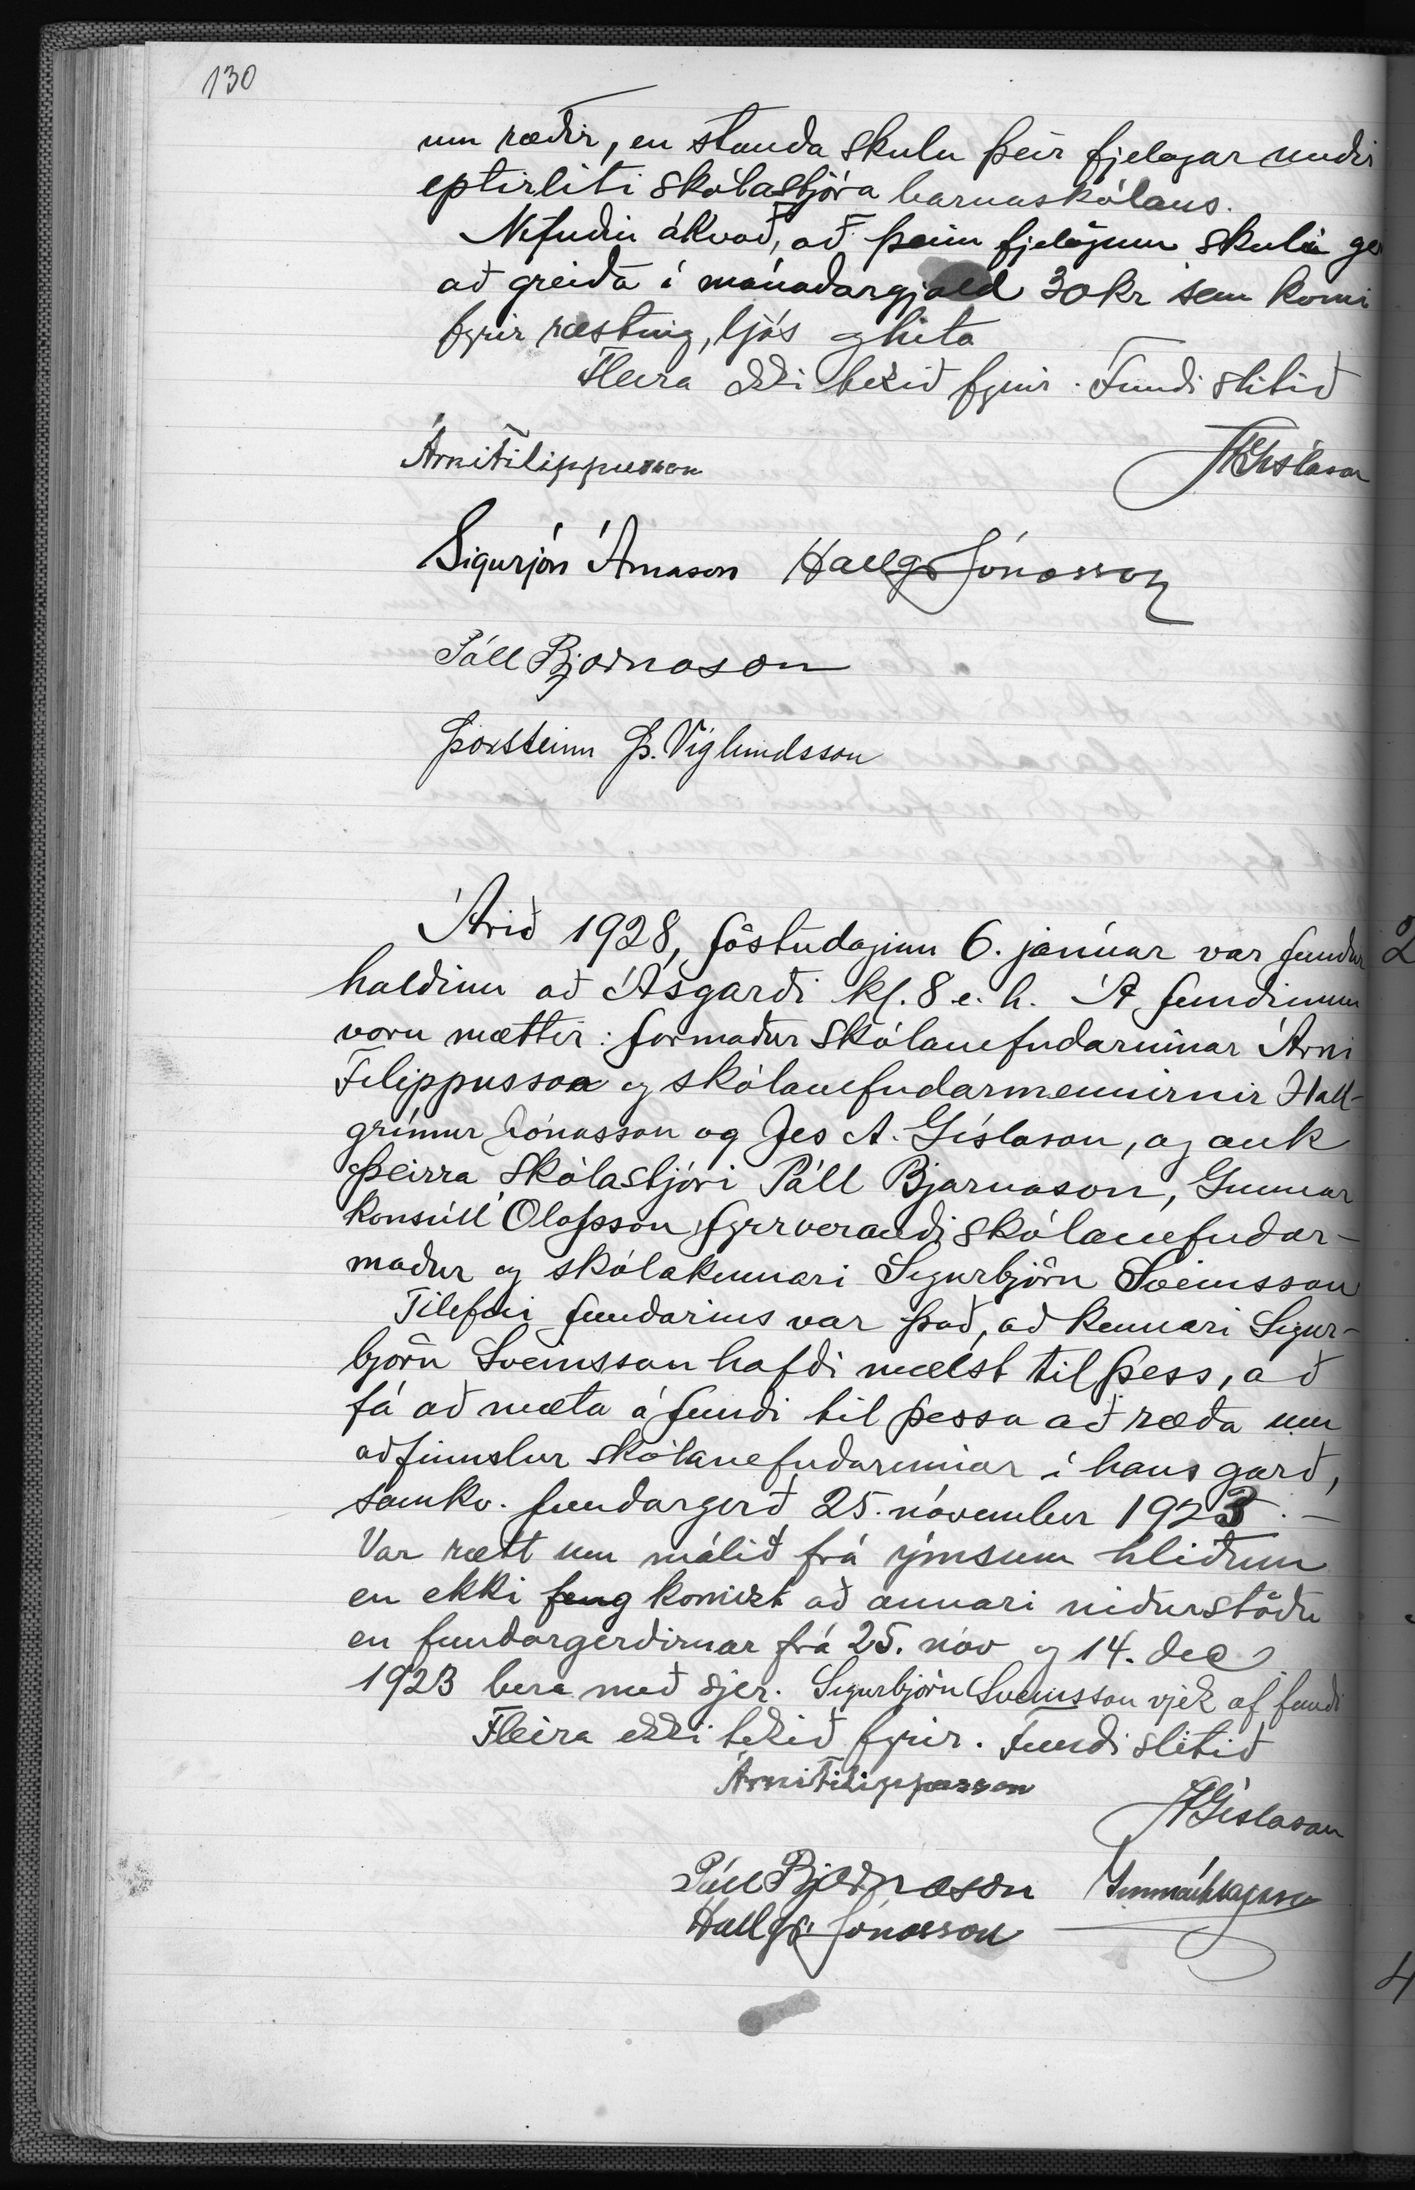 130
um ræðir, en standa skulu þeir fjelagar undir
eptirliti skólastjóra barnaskólans.
Nefndin ákvað, að þeim fjelögum skuli ge
að greiða í mánaðargjald 30 kr sem komi
fyrir ræsting, ljós og hita
Fleira ekki tekið fyrir. Fundi slitið
Árni Filippusson
JAGíslason
Sigurjón Árnason Hallgr Jónasson
Páll Bjarnason
Þorsteinn Þ. Víglundsson
Árið 1928, föstudaginn 6. janúar var fundur
haldinn að Ásgarði kl. 8 e. h. Á fundinum
voru mættir: formaður skólanefndarinnar Árni
Filippusson og skólanefndarmennirnir Hall-
grímur Jónasson og Jes A. Gíslason, og auk
þeirra skólastjóri Páll Bjarnason, Gunnar
konsúll Ólafsson fyrrverandi skólanefndar-
maður og skólakennari Sigurbjörn Sveinsson
Tilefni fundarins var það, að kennari Sigur-
björn Sveinsson hafði mælst til þess, að
fá að mæta á fundi til þessa að ræða um
aðfinnslur skólanefndarinnar í hans garð,
samkv. fundargerð 25. nóvember 1923. -
Var rætt um málið frá ýmsum hliðum
en ekki feng komist að annari niðurstöðu
en fundargerðirnar frá 25. nóv og 14. dec
1923 bera með sjer. Sigurbjörn Sveinsson vjek af fundi
Fleira ekki tekið fyrir. Fundi slitið
Árni Filippusson
JAGíslason
Páll Bjarnason Gunnar Ólafsson
Hallgr. Jónasson